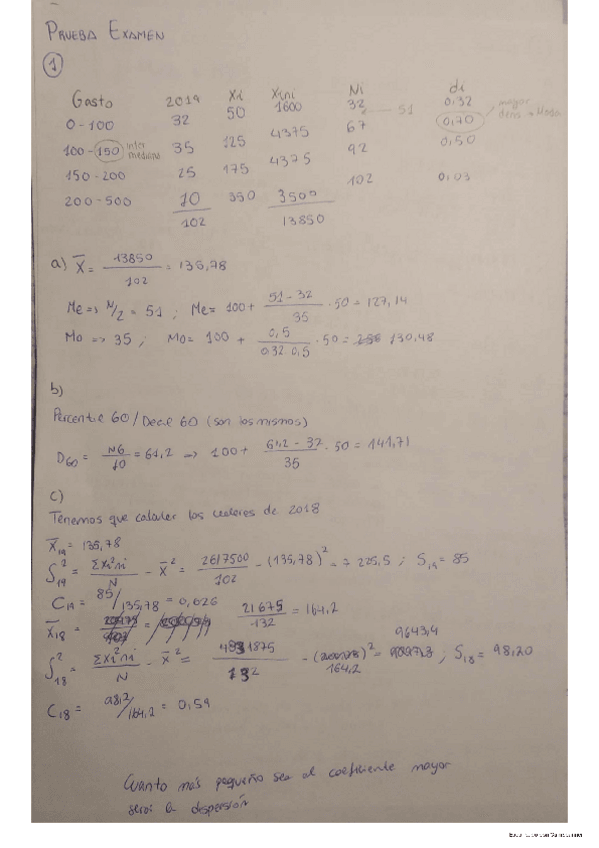 PRUEBA EXAMEN
1
Gasto 2019 Xi Xini Ni di
0-100 32 50 1600 32 51 0,32 mayor dens → Moda
100-150 inter mediana 35 125 4375 67 0,70
150-200 25 175 4375 92 0,50
200-500 10 350 3500 102 0,03
102 13850
a) X̄ = 13850/102 = 135,78
Me => N/2 = 51 ; Me = 100 + 51-32/35 · 50 = 127,14
Mo => 35 ; Mo = 100 + 0,5/0,32 0,5 · 50 = 130,48
b)
Percentil 60 / Decil 60 (son los mismos)
D60 = N6/10 = 61,2 → 100 + 61,2 - 32/35 · 50 = 141,71
c)
Tenemos que calcular los valores de 2018
X̄19 = 135,78
S²19 = Σxi²ni/N - X̄² = 2617500/102 - (135,78)² = 7225,5 ; S19 = 85
C19 = 85/135,78 = 0,626
X̄18 = 21675/132 = 164,2
S²18 = Σxi²ni/N - X̄² = 4831875/132 - ( 164,2 )² = 9643,4 ; S18 = 98,20
C18 = 98,2/164,2 = 0,59
Cuanto más pequeño sea el coeficiente mayor
será la dispersión